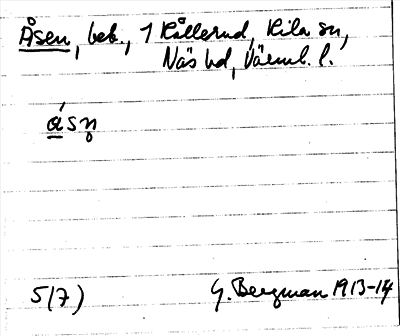 Åsen, beb., 1 Kållerud, Kila sn,
Näs hd, Värml. l.
ásn̥
5(7) G. Bergman 1913-14